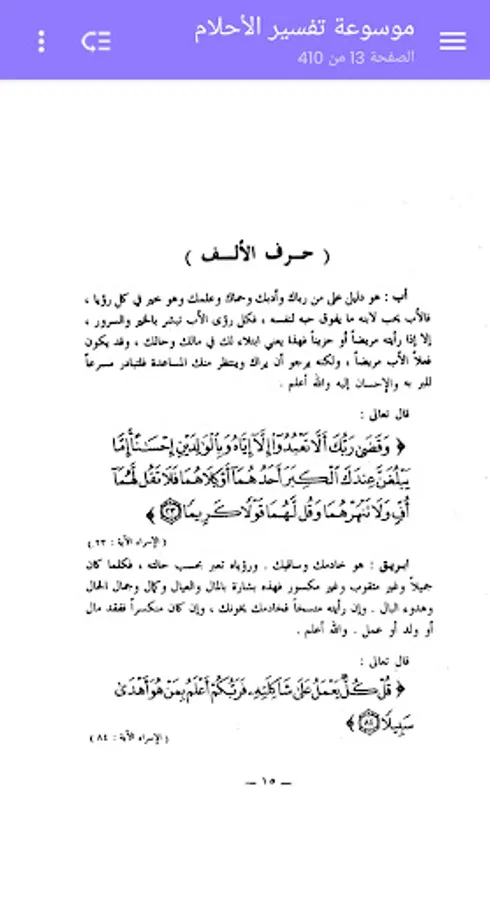 موسوعة تفسير الأحلام
الصفحة 13 من 410
( حرف الألف )
أب : هو دليل على من رباك وأدبك وحماك وعلمك وهو خير في كل رؤيا ،
فالأب يحب لابنه ما يفوق حبه لنفسه ، فكل رؤى الأب تبشر بالخير والسرور ،
إلا إذا رأيته مريضاً أو حزيناً فهذا يعني ابتلاء لك في مالك وحالك ، وقد يكون
فعلاً الأب مريضاً ، ولكنه يرجو أن يراك وينتظر منك المساعدة فلتبادر مسرعاً
للبر به والإحسان إليه والله أعلم .
قال تعالى :
﴿ وَقَضَىٰ رَبُّكَ أَلَّا تَعْبُدُوٓا۟ إِلَّآ إِيَّاهُ وَبِٱلْوَٰلِدَيْنِ إِحْسَٰنًا إِمَّا
يَبْلُغَنَّ عِندَكَ ٱلْكِبَرَ أَحَدُهُمَآ أَوْ كِلَاهُمَا فَلَا تَقُل لَّهُمَآ
أُفٍّ وَلَا تَنْهَرْهُمَا وَقُل لَّهُمَا قَوْلًا كَرِيمًا ﴿٢٣﴾ ﴾
( الإسراء الآية : ٢٣ )
ابريق : هو خادمك وساقيك . ورؤياه تعبر بحسب حالته ، فكلما كان
جميلاً وغير مثقوب وغير مكسور فهذه بشارة بالمال والعيال وكمال وجمال الحال
وهدوء البال . وإن رأيته متسخاً فخادمك يخونك ، وإن كان منكسراً ففقد مال
أو ولد أو عمل . والله أعلم .
قال تعالى :
﴿ قُلْ كُلٌّ يَعْمَلُ عَلَىٰ شَاكِلَتِهِۦ فَرَبُّكُمْ أَعْلَمُ بِمَنْ هُوَ أَهْدَىٰ
سَبِيلًا ﴿٨٤﴾ ﴾
( الإسراء الآية : ٨٤ )
— ١٥ —